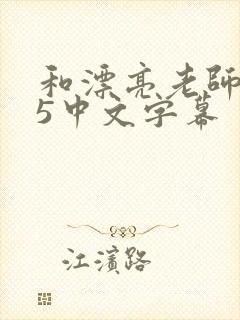 和漂亮老師
5中文字幕
江濱路